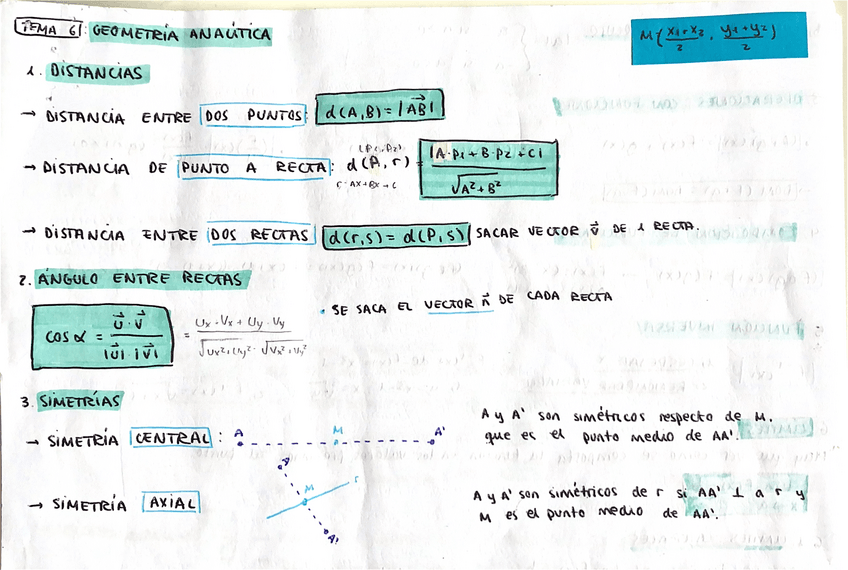 TEMA 6: GEOMETRÍA ANALÍTICA
M(x1+x2/2, y1+y2/2)
1. DISTANCIAS
→ DISTANCIA ENTRE DOS PUNTOS: d(A,B) = |AB|
(P1,P2)
→ DISTANCIA DE PUNTO A RECTA: d(P,r) = |A·P1 + B·P2 + C| / √A²+B²
r: AX+BX+C
→ DISTANCIA ENTRE DOS RECTAS d(r,s) = d(P,s) SACAR VECTOR v⃗ DE 1 RECTA.
2. ÁNGULO ENTRE RECTAS
• SE SACA EL VECTOR n⃗ DE CADA RECTA
cos α = u⃗·v⃗ / |u⃗|·|v⃗| = Ux·Vx + Uy·Vy / √Ux²+Uy² · √Vx²+Vy²
3. SIMETRÍAS
→ SIMETRÍA CENTRAL: A M A'
A y A' son simétricos respecto de M.
que es el punto medio de AA'.
→ SIMETRÍA AXIAL
A M r A'
A y A' son simétricos de r si AA' ⊥ a r y
M es el punto medio de AA'.